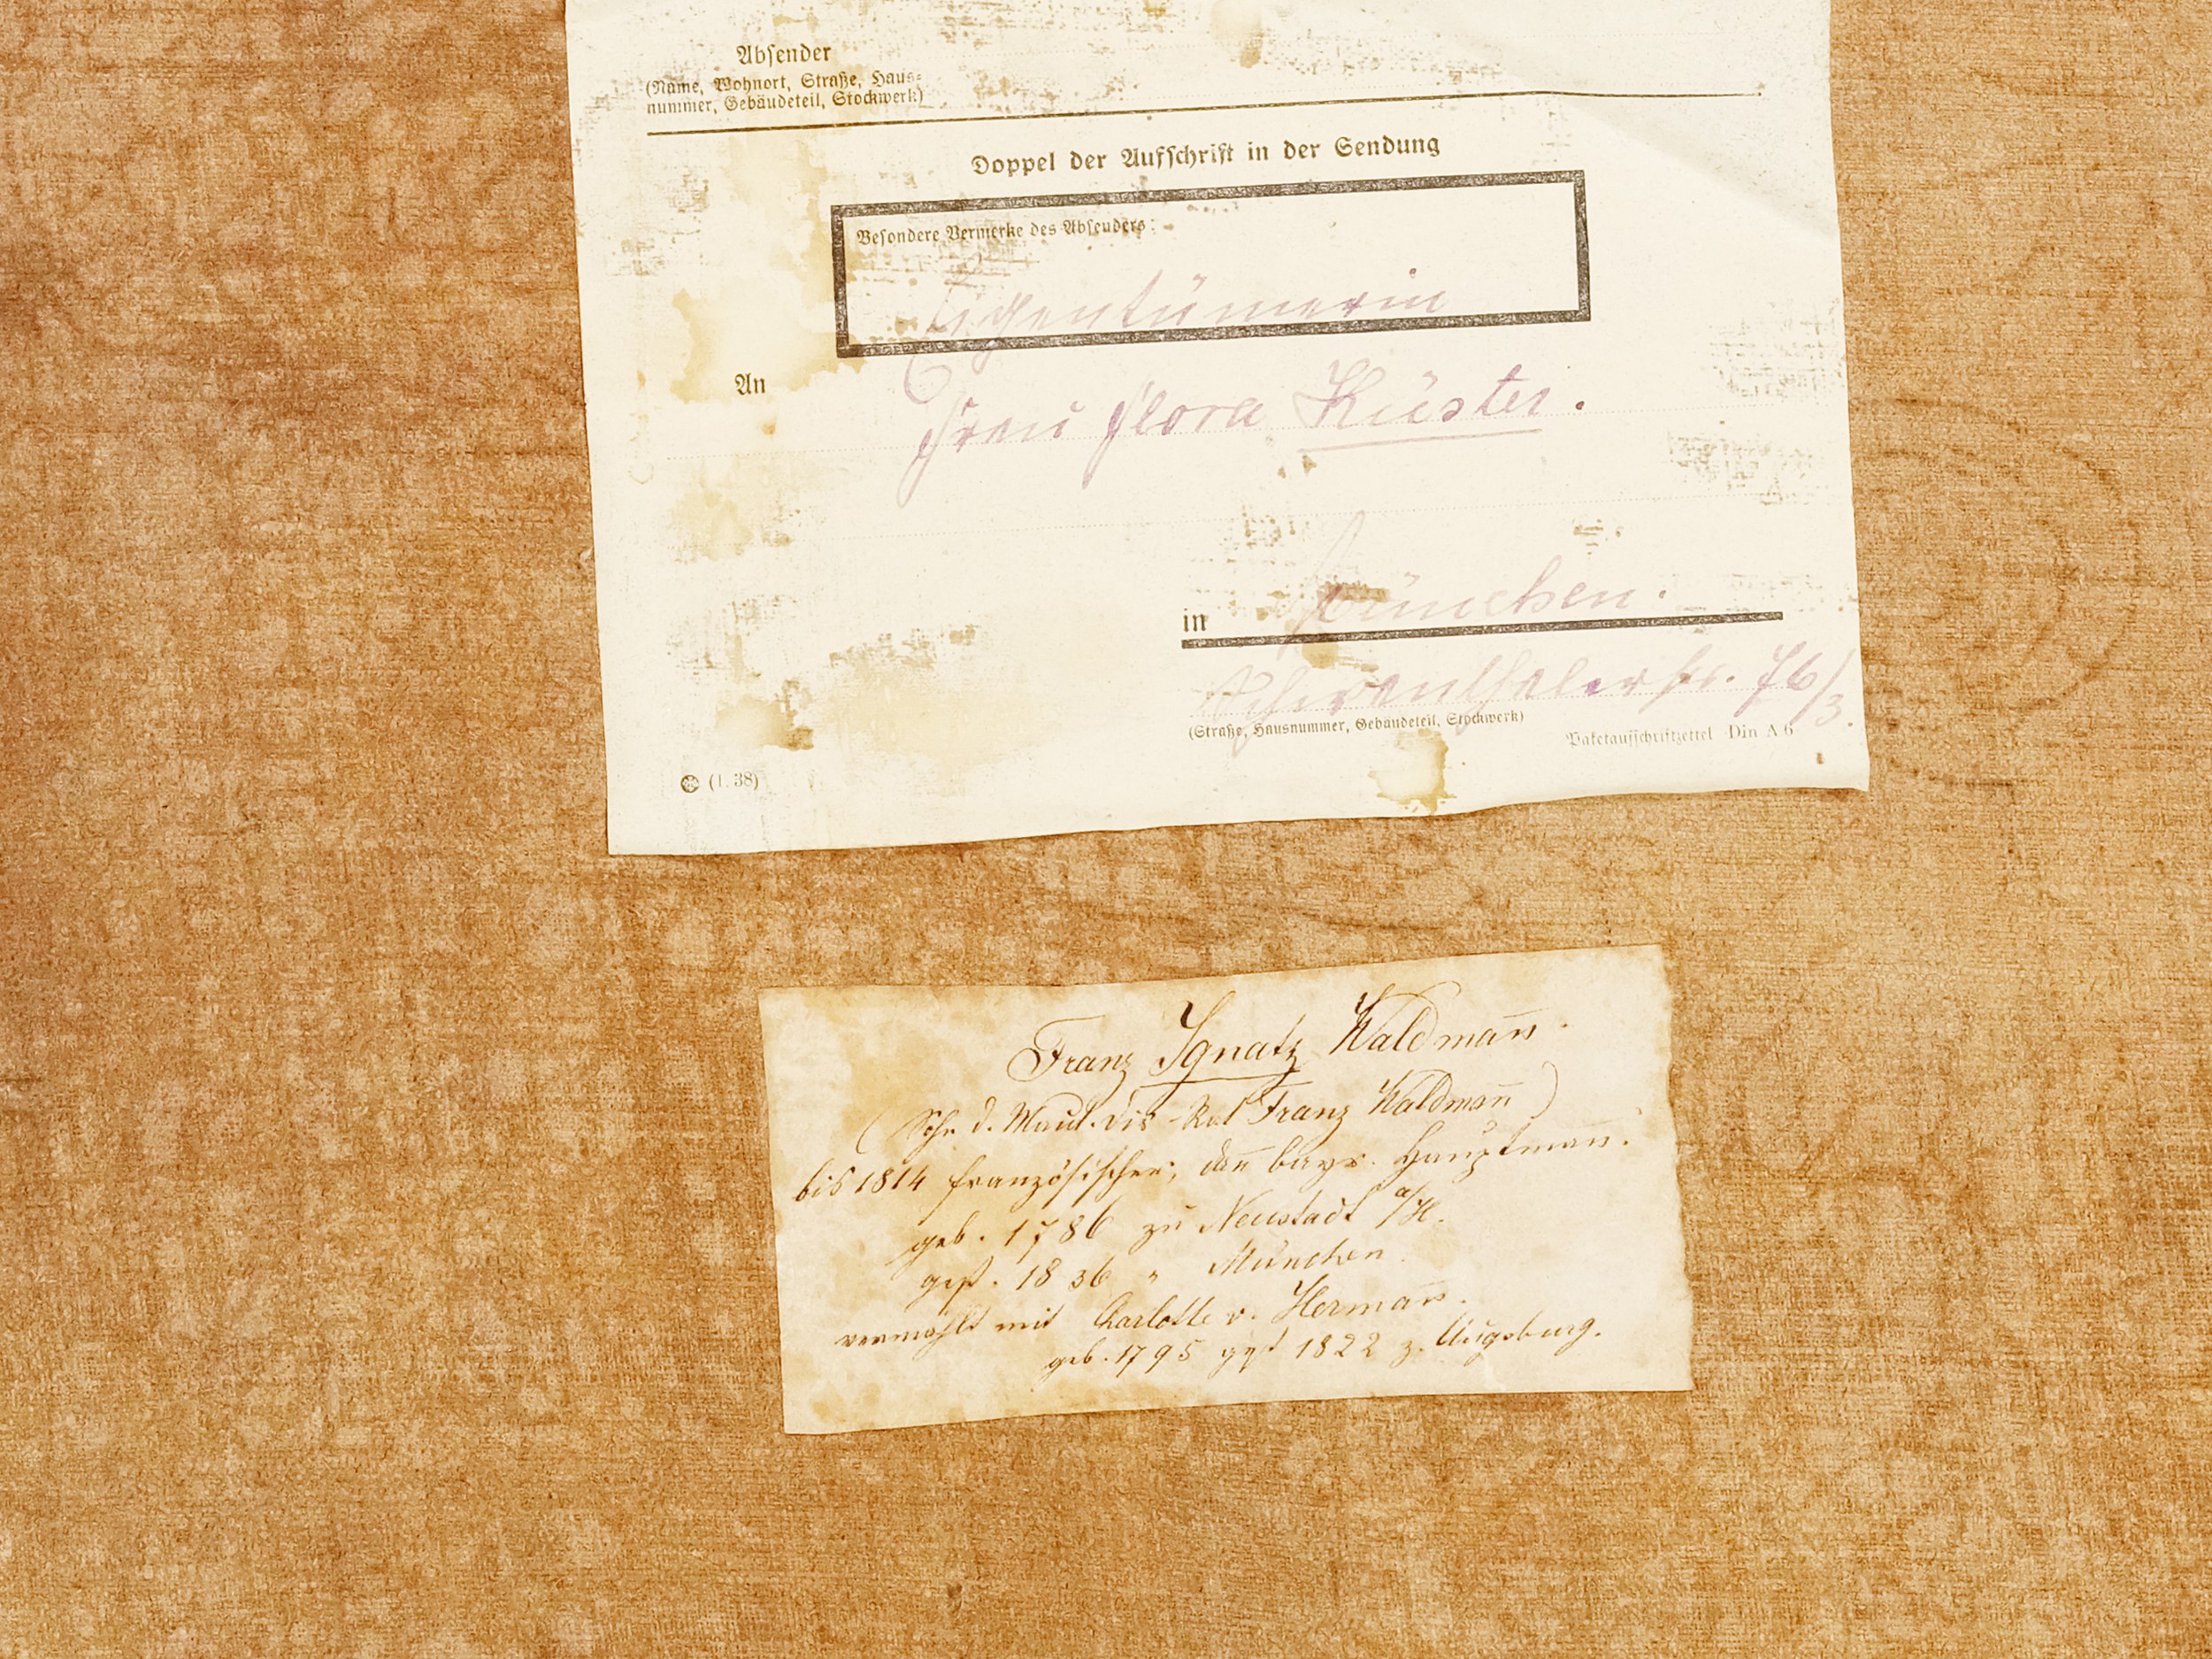 Absender
(Name, Wohnort, Straße, Haus-
nummer, Gebäudeteil, Stockwerk)
Doppel der Aufschrift in der Sendung
Besondere Vermerke des Absenders:
Eigentümerin
An
Frau Flora Küster.
in München.
Schwanthalerstr. 76/3.
(Straße, Hausnummer, Gebäudeteil, Stockwerk)
Paketaufschriftzettel Din A 6
(1. 38)
Franz Ignatz Waldman̄.
(Sohn d. Maut. Rat Franz Waldman̄)
bis 1814 französischer, dan̄ bayr. Hauptman̄.
geb. 1786 zu Neustadt a/H.
gest. 1836 " München.
vermählt mit Charlotte v. Herman̄.
geb. 1795 gest 1822 z. Augsburg.